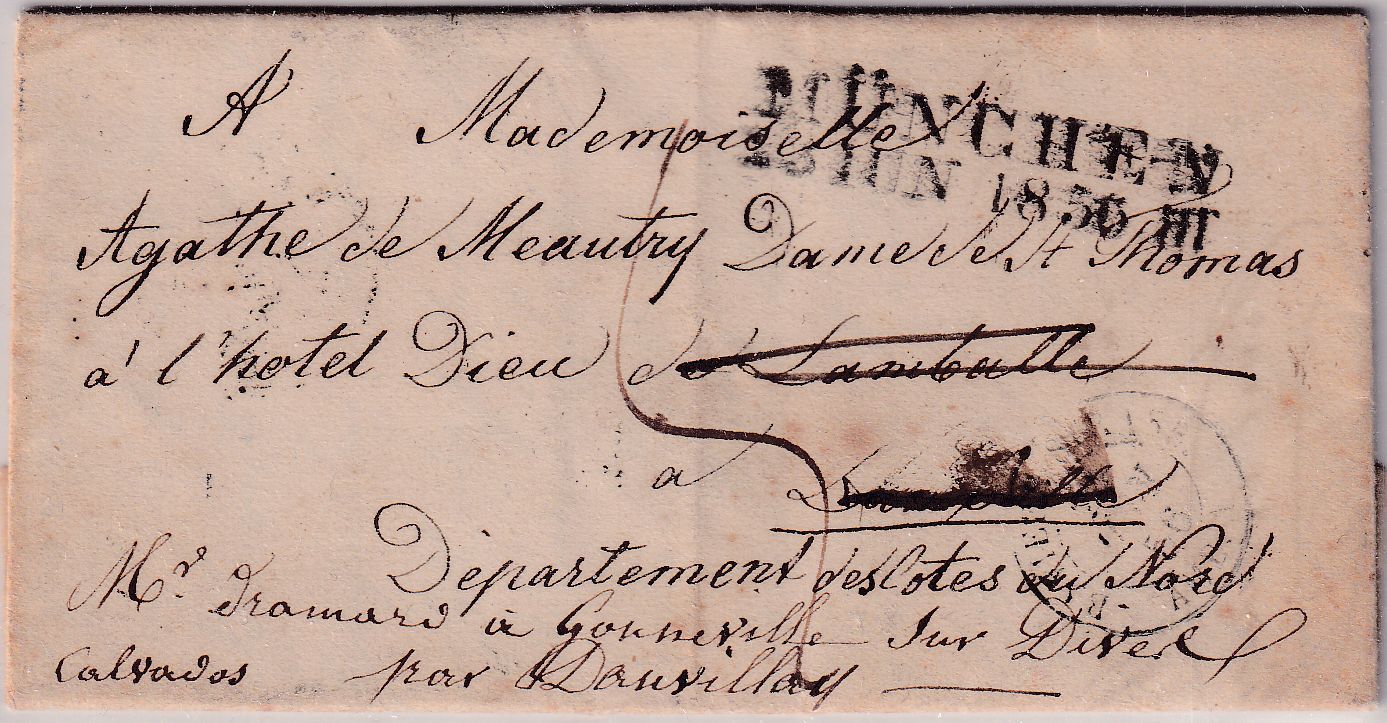 A Mademoiselle
MÜNCHEN
18 IUN 1856 III
Agathe de Meautry Dame de St Thomas
à l'hotel Dieu de Lamballe
a Lamballe
Département des Cotes du Nord
Mr. dramard à Gonneville sur Dives
Calvados par Dauvillay